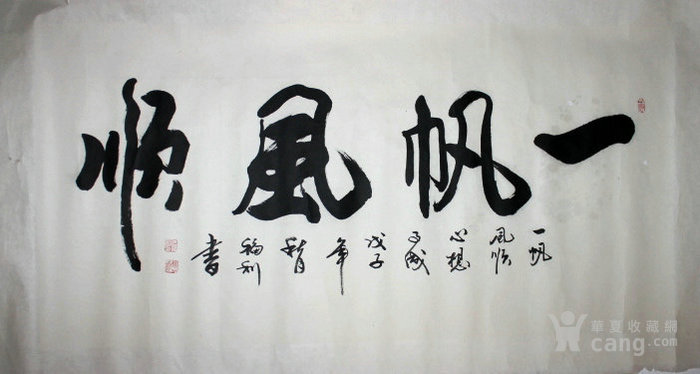 一帆風順
一帆
風順
心想
事成
戊子
年
書
華夏收藏網
cang.com